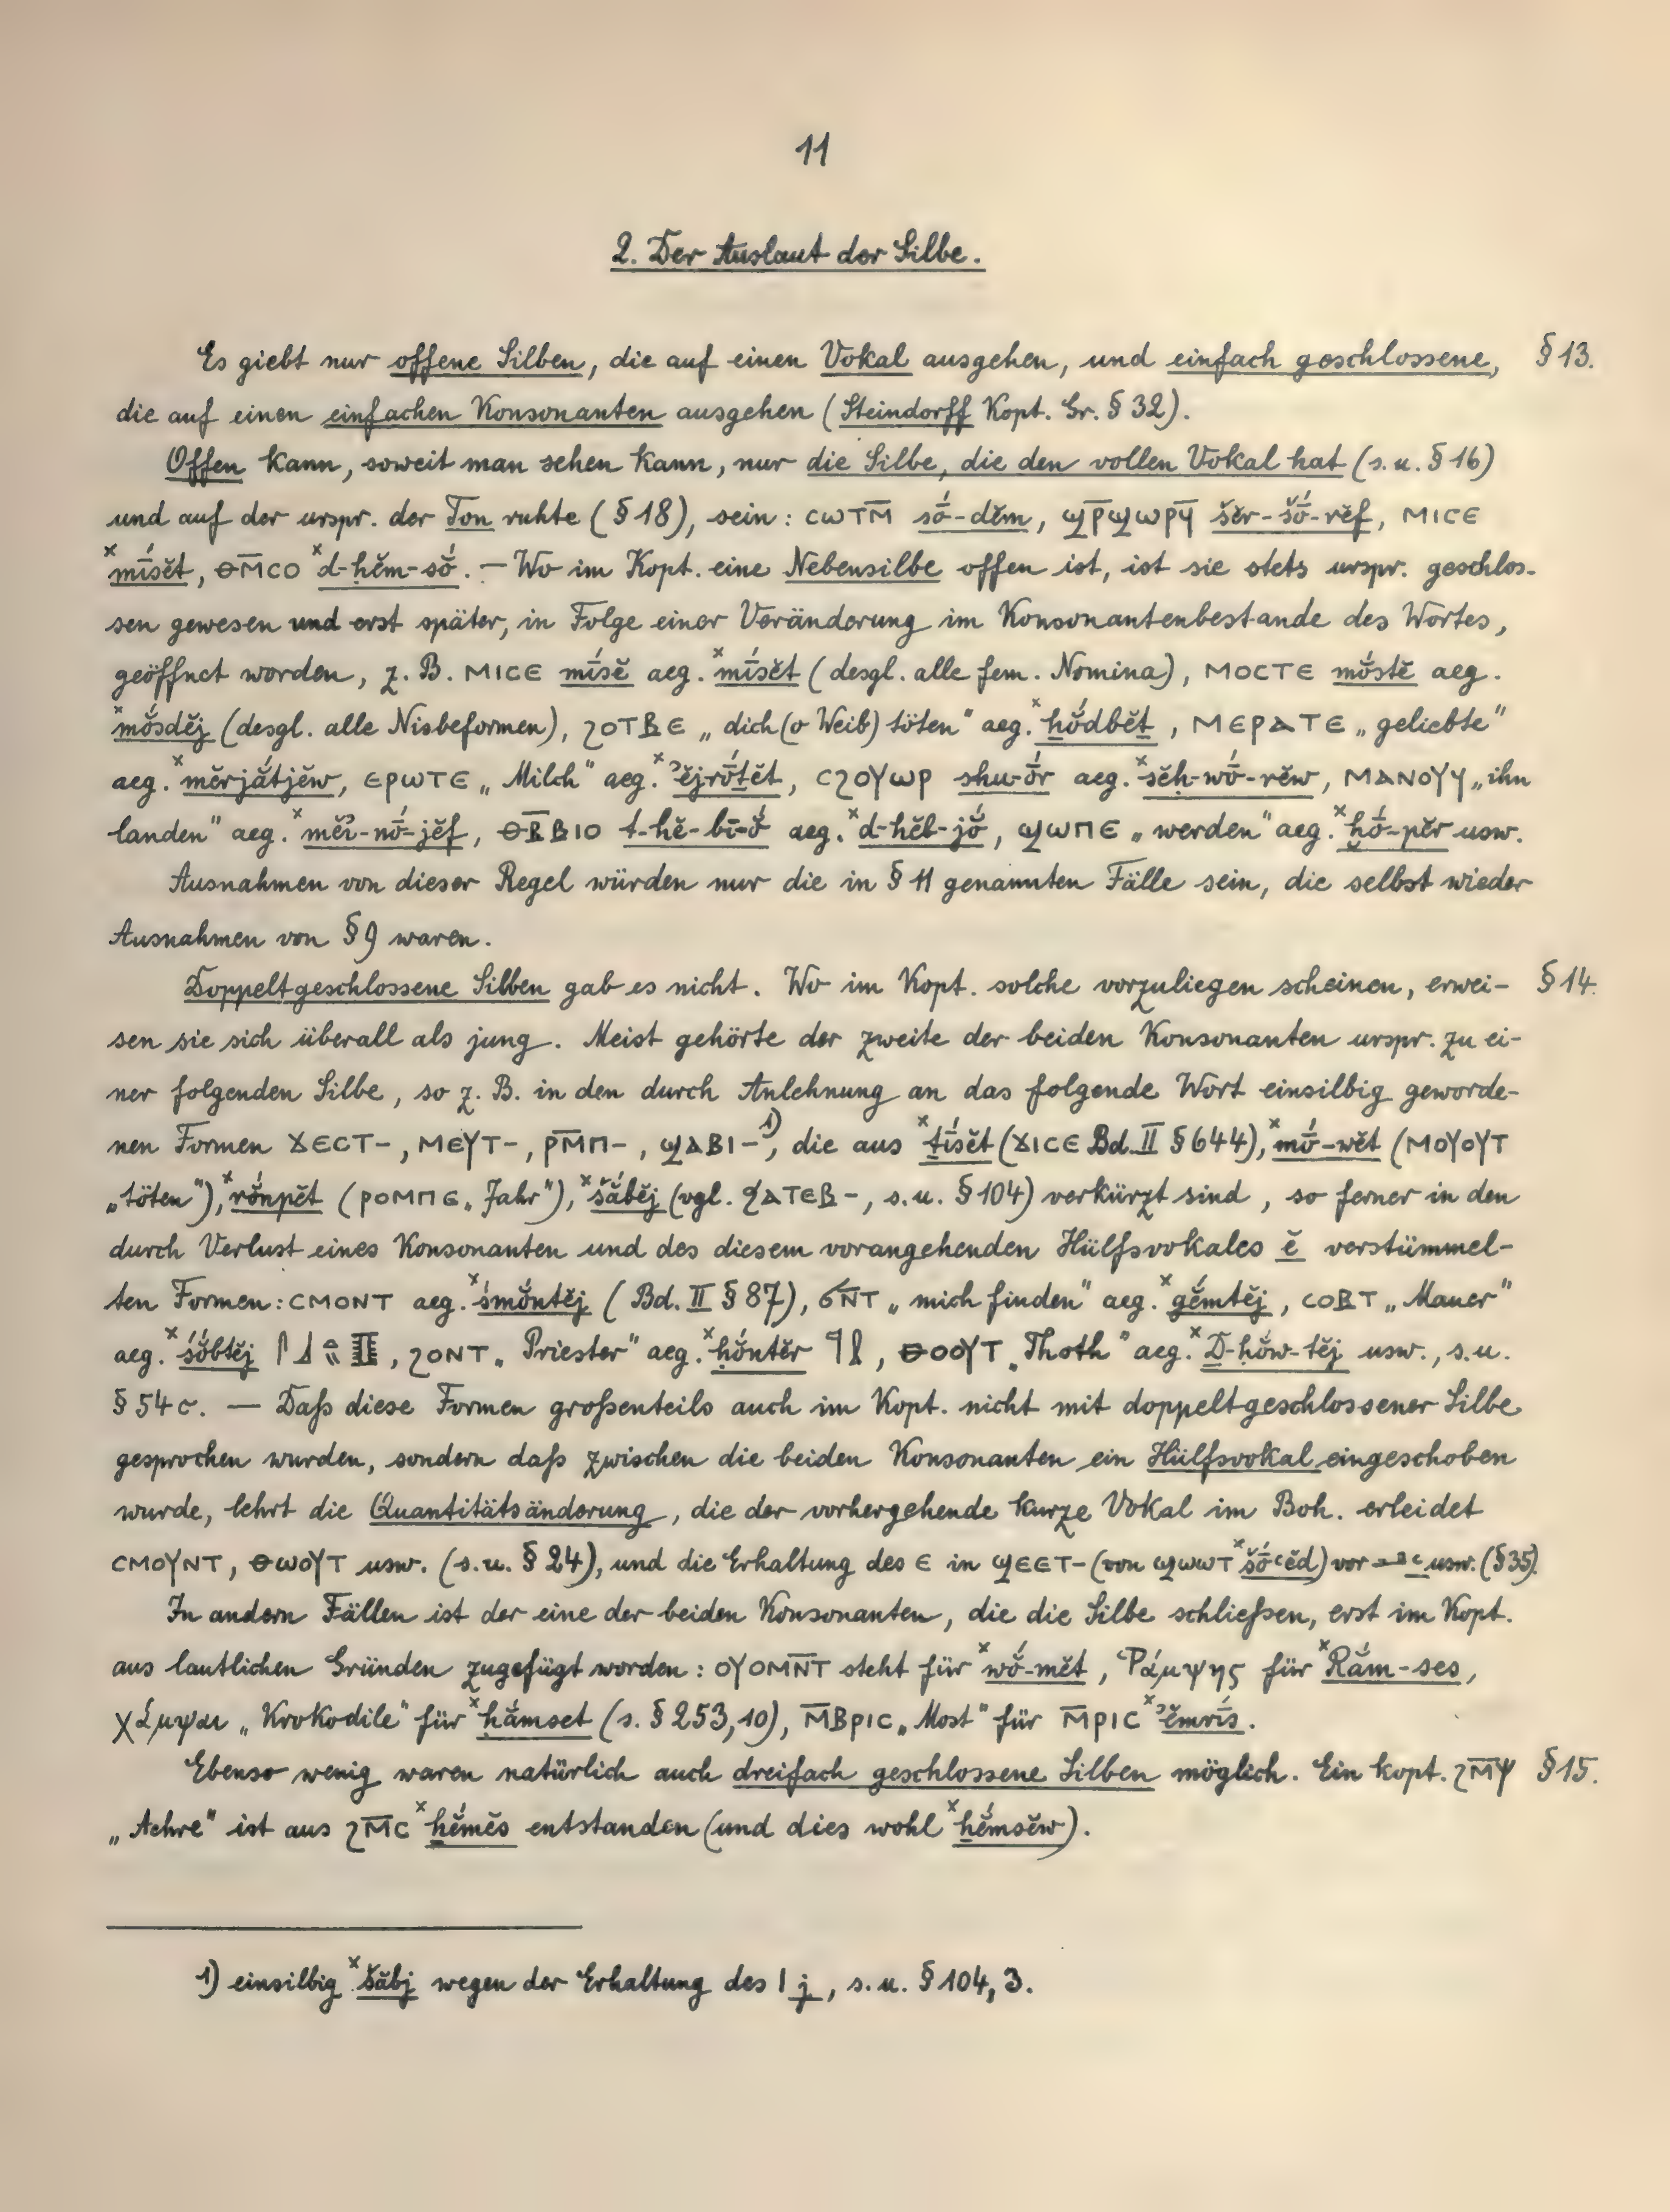 11
2. Der Auslaut der Silbe.
Es giebt nur offene Silben, die auf einen Vokal ausgehen, und einfach geschlossene, § 13.
die auf einen einfachen Konsonanten ausgehen (Steindorff Kopt. Gr. § 32).
Offen kann, soweit man sehen kann, nur die Silbe, die den vollen Vokal hat (s. u. § 16)
und auf der urspr. der Ton ruhte (§ 18), sein: ⲥⲱⲧⲙ̅ sṓ-dĕm, ϣⲣ̅ϣⲱⲣϥ̅ šĕr-šṓ-rĕf, ⲙⲓⲥⲉ
ˣmī́sĕt, ⲑⲙ̅ⲥⲟ ˣd-ḥĕm-sŏ́. – Wo im Kopt. eine Nebensilbe offen ist, ist sie stets urspr. geschlos-
sen gewesen und erst später, in Folge einer Veränderung im Konsonantenbestande des Wortes,
geöffnet worden, z. B. ⲙⲓⲥⲉ mī́sĕ aeg. ˣmī́sĕt (desgl. alle fem. Nomina), ⲙⲟⲥⲧⲉ mŏ́stĕ aeg.
ˣmŏ́sdĕj (desgl. alle Nisbeformen), ϩⲟⲧⲃⲉ „dich (o Weib) töten“ aeg. ˣḫŏ́dbĕṯ, ⲙⲉⲣⲁⲧⲉ „geliebte“
aeg. ˣmĕrjắtjĕw, ⲉⲣⲱⲧⲉ „Milch“ aeg. ˣʾĕjrṓṯĕt, ⲥϩⲟⲩⲱⲣ shu-ṓr aeg. ˣsĕḥ-wṓ-rĕw, ⲙⲁⲛⲟⲩϥ „ihn
landen“ aeg. ˣmĕi-nṓ-jĕf, ⲑⲃ̅ⲃⲓⲟ t-hĕ-bī-ŏ́ aeg. ˣd-ḥĕb-jŏ́, ϣⲱⲡⲉ „werden“ aeg. ˣḫṓ-pĕr usw.
Ausnahmen von dieser Regel würden nur die in § 11 genannten Fälle sein, die selbst wieder
Ausnahmen von § 9 waren.
Doppeltgeschlossene Silben gab es nicht. Wo im Kopt. solche vorzuliegen scheinen, erwei- § 14.
sen sie sich überall als jung. Meist gehörte der zweite der beiden Konsonanten urspr. zu ei-
ner folgenden Silbe, so z. B. in den durch Anlehnung an das folgende Wort einsilbig geworde-
nen Formen ϫⲉⲥⲧ-, ⲙⲉⲩⲧ-, ⲣⲙ̅ⲡ-, ϣⲁⲃⲓ-¹⁾, die aus ˣṯī́sĕt (ϫⲓⲥⲉ Bd. II § 644), ˣmṓ-wĕt (ⲙⲟⲩⲟⲩⲧ
„töten“), ˣrŏ́npĕt (ⲣⲟⲙⲡⲉ „Jahr“), ˣšắbĕj (vgl. ϩⲁⲧⲉⲃ-, s. u. § 104) verkürzt sind, so ferner in den
durch Verlust eines Konsonanten und des diesem vorangehenden Hülfsvokales ĕ verstümmel-
ten Formen: ⲥⲙⲟⲛⲧ aeg. ˣśmŏ́ntĕj (Bd. II § 87), ϭⲛ̅ⲧ „mich finden“ aeg. ˣgĕ́mtĕj, ⲥⲟⲃⲧ „Mauer“
aeg. ˣśŏ́btĕj, ϩⲟⲛⲧ „Priester“ aeg. ˣḥŏ́ntĕr, ⲑⲟⲟⲩⲧ „Thoth“ aeg. ˣḎ-ḥŏ́w-tĕj usw., s. u.
§ 54 c. — Daß diese Formen großenteils auch im Kopt. nicht mit doppeltgeschlossener Silbe
gesprochen wurden, sondern daß zwischen die beiden Konsonanten ein Hülfsvokal eingeschoben
wurde, lehrt die Quantitätsänderung, die der vorhergehende kurze Vokal im Boh. erleidet
ⲥⲙⲟⲩⲛⲧ, ⲑⲱⲟⲩⲧ usw. (s. u. § 24), und die Erhaltung des ⲉ in ϣⲉⲉⲧ- (von ϣⲱⲱⲧ ˣšṓʿĕd) vor ʿ usw. (§ 35).
In andern Fällen ist der eine der beiden Konsonanten, die die Silbe schließen, erst im Kopt.
aus lautlichen Gründen zugefügt worden: ⲟⲩⲟⲙⲛ̅ⲧ steht für ˣwŏ́-mĕt, Ῥάμψης für ˣRắm-ses,
χάμψαι „Krokodile“ für ˣḥắmset (s. § 253,10), ⲙ̅ⲃⲣⲓⲥ „Most“ für ⲙ̅ⲣⲓⲥ ˣʾĕmrī́s.
Ebenso wenig waren natürlich auch dreifach geschlossene Silben möglich. Ein kopt. ϩⲙ̅ⲯ § 15.
„Aehre“ ist aus ϩⲙ̅ⲥ ˣḫĕ́mĕs entstanden (und dies wohl ˣḫĕ́msĕw).
1) einsilbig ˣšăbj wegen der Erhaltung des ⲓ j, s. u. § 104, 3.